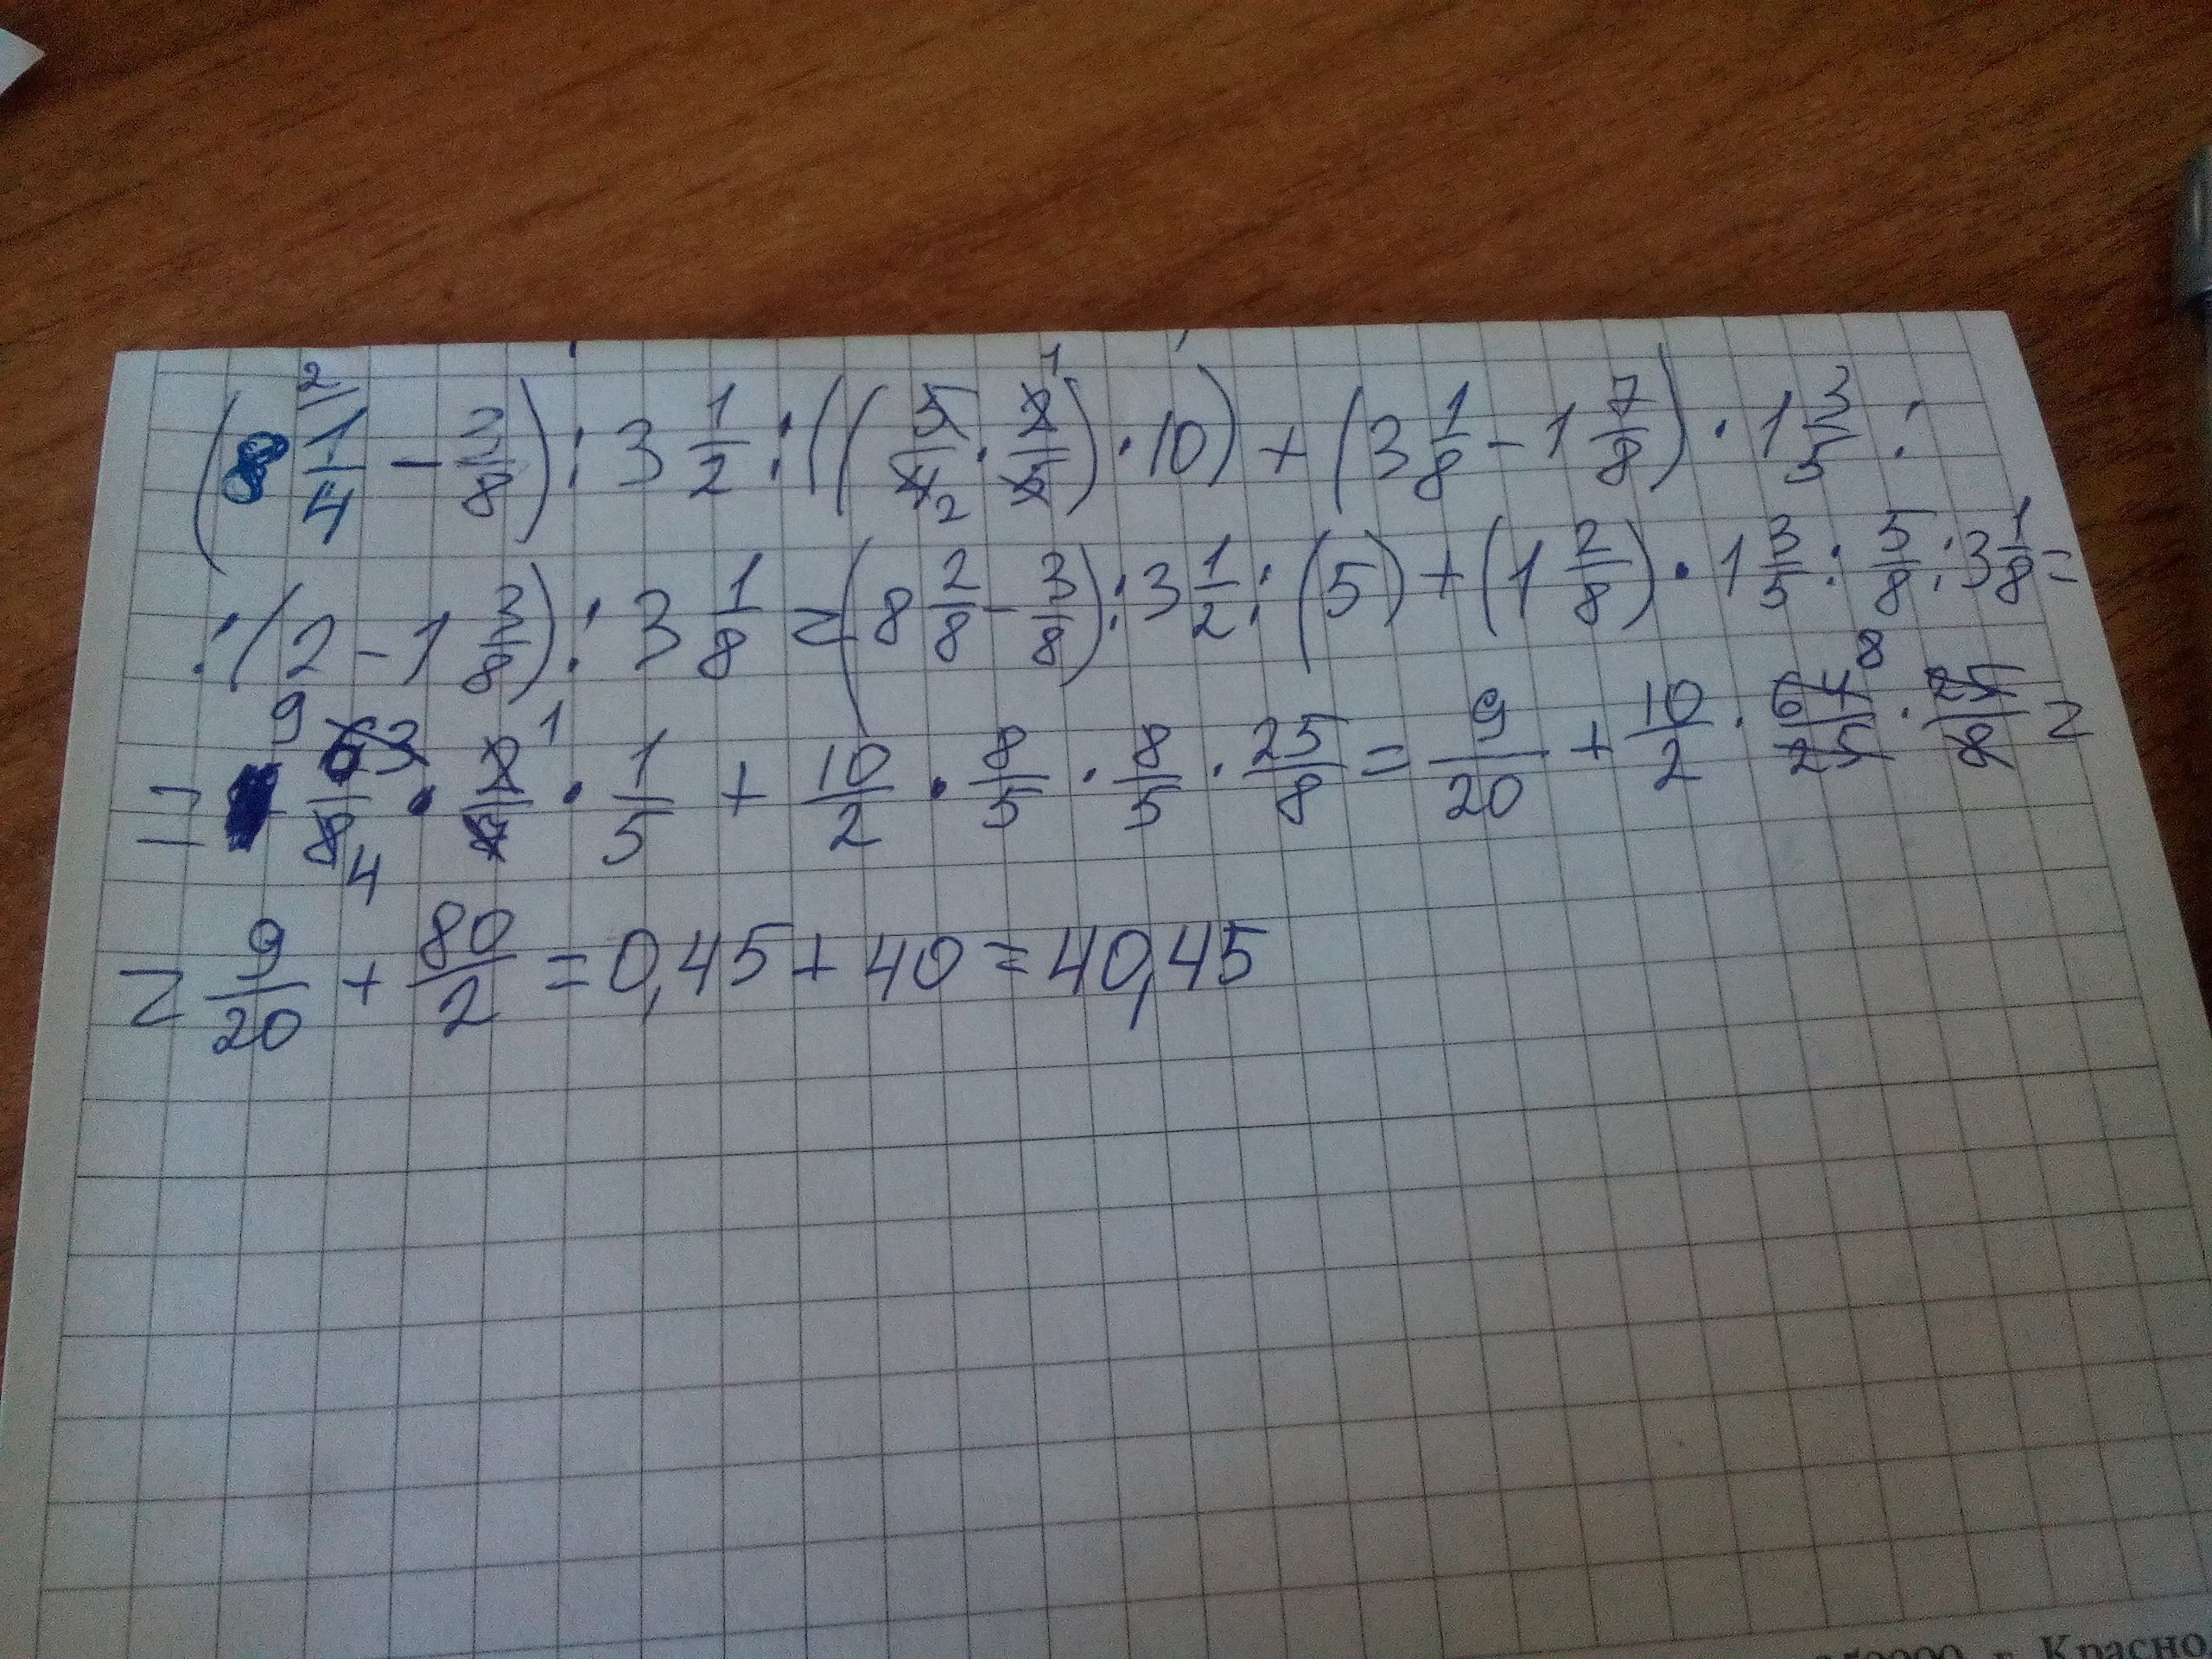 (8 1/4 - 3/8) : 3 1/2 : ((5/4 · 2/5) · 10) + (3 1/8 - 1 7/8) · 1 3/5 :
: (2 - 1 3/8) : 3 1/8 = (8 2/8 - 3/8) : 3 1/2 : (5) + (1 2/8) · 1 3/5 : 5/8 : 3 1/8 =
= 63/8 · 2/7 · 1/5 + 10/2 · 8/5 · 8/5 · 25/8 = 9/20 + 10/2 · 64/25 · 25/8 =
= 9/20 + 80/2 = 0,45 + 40 = 40,45
г. Красно